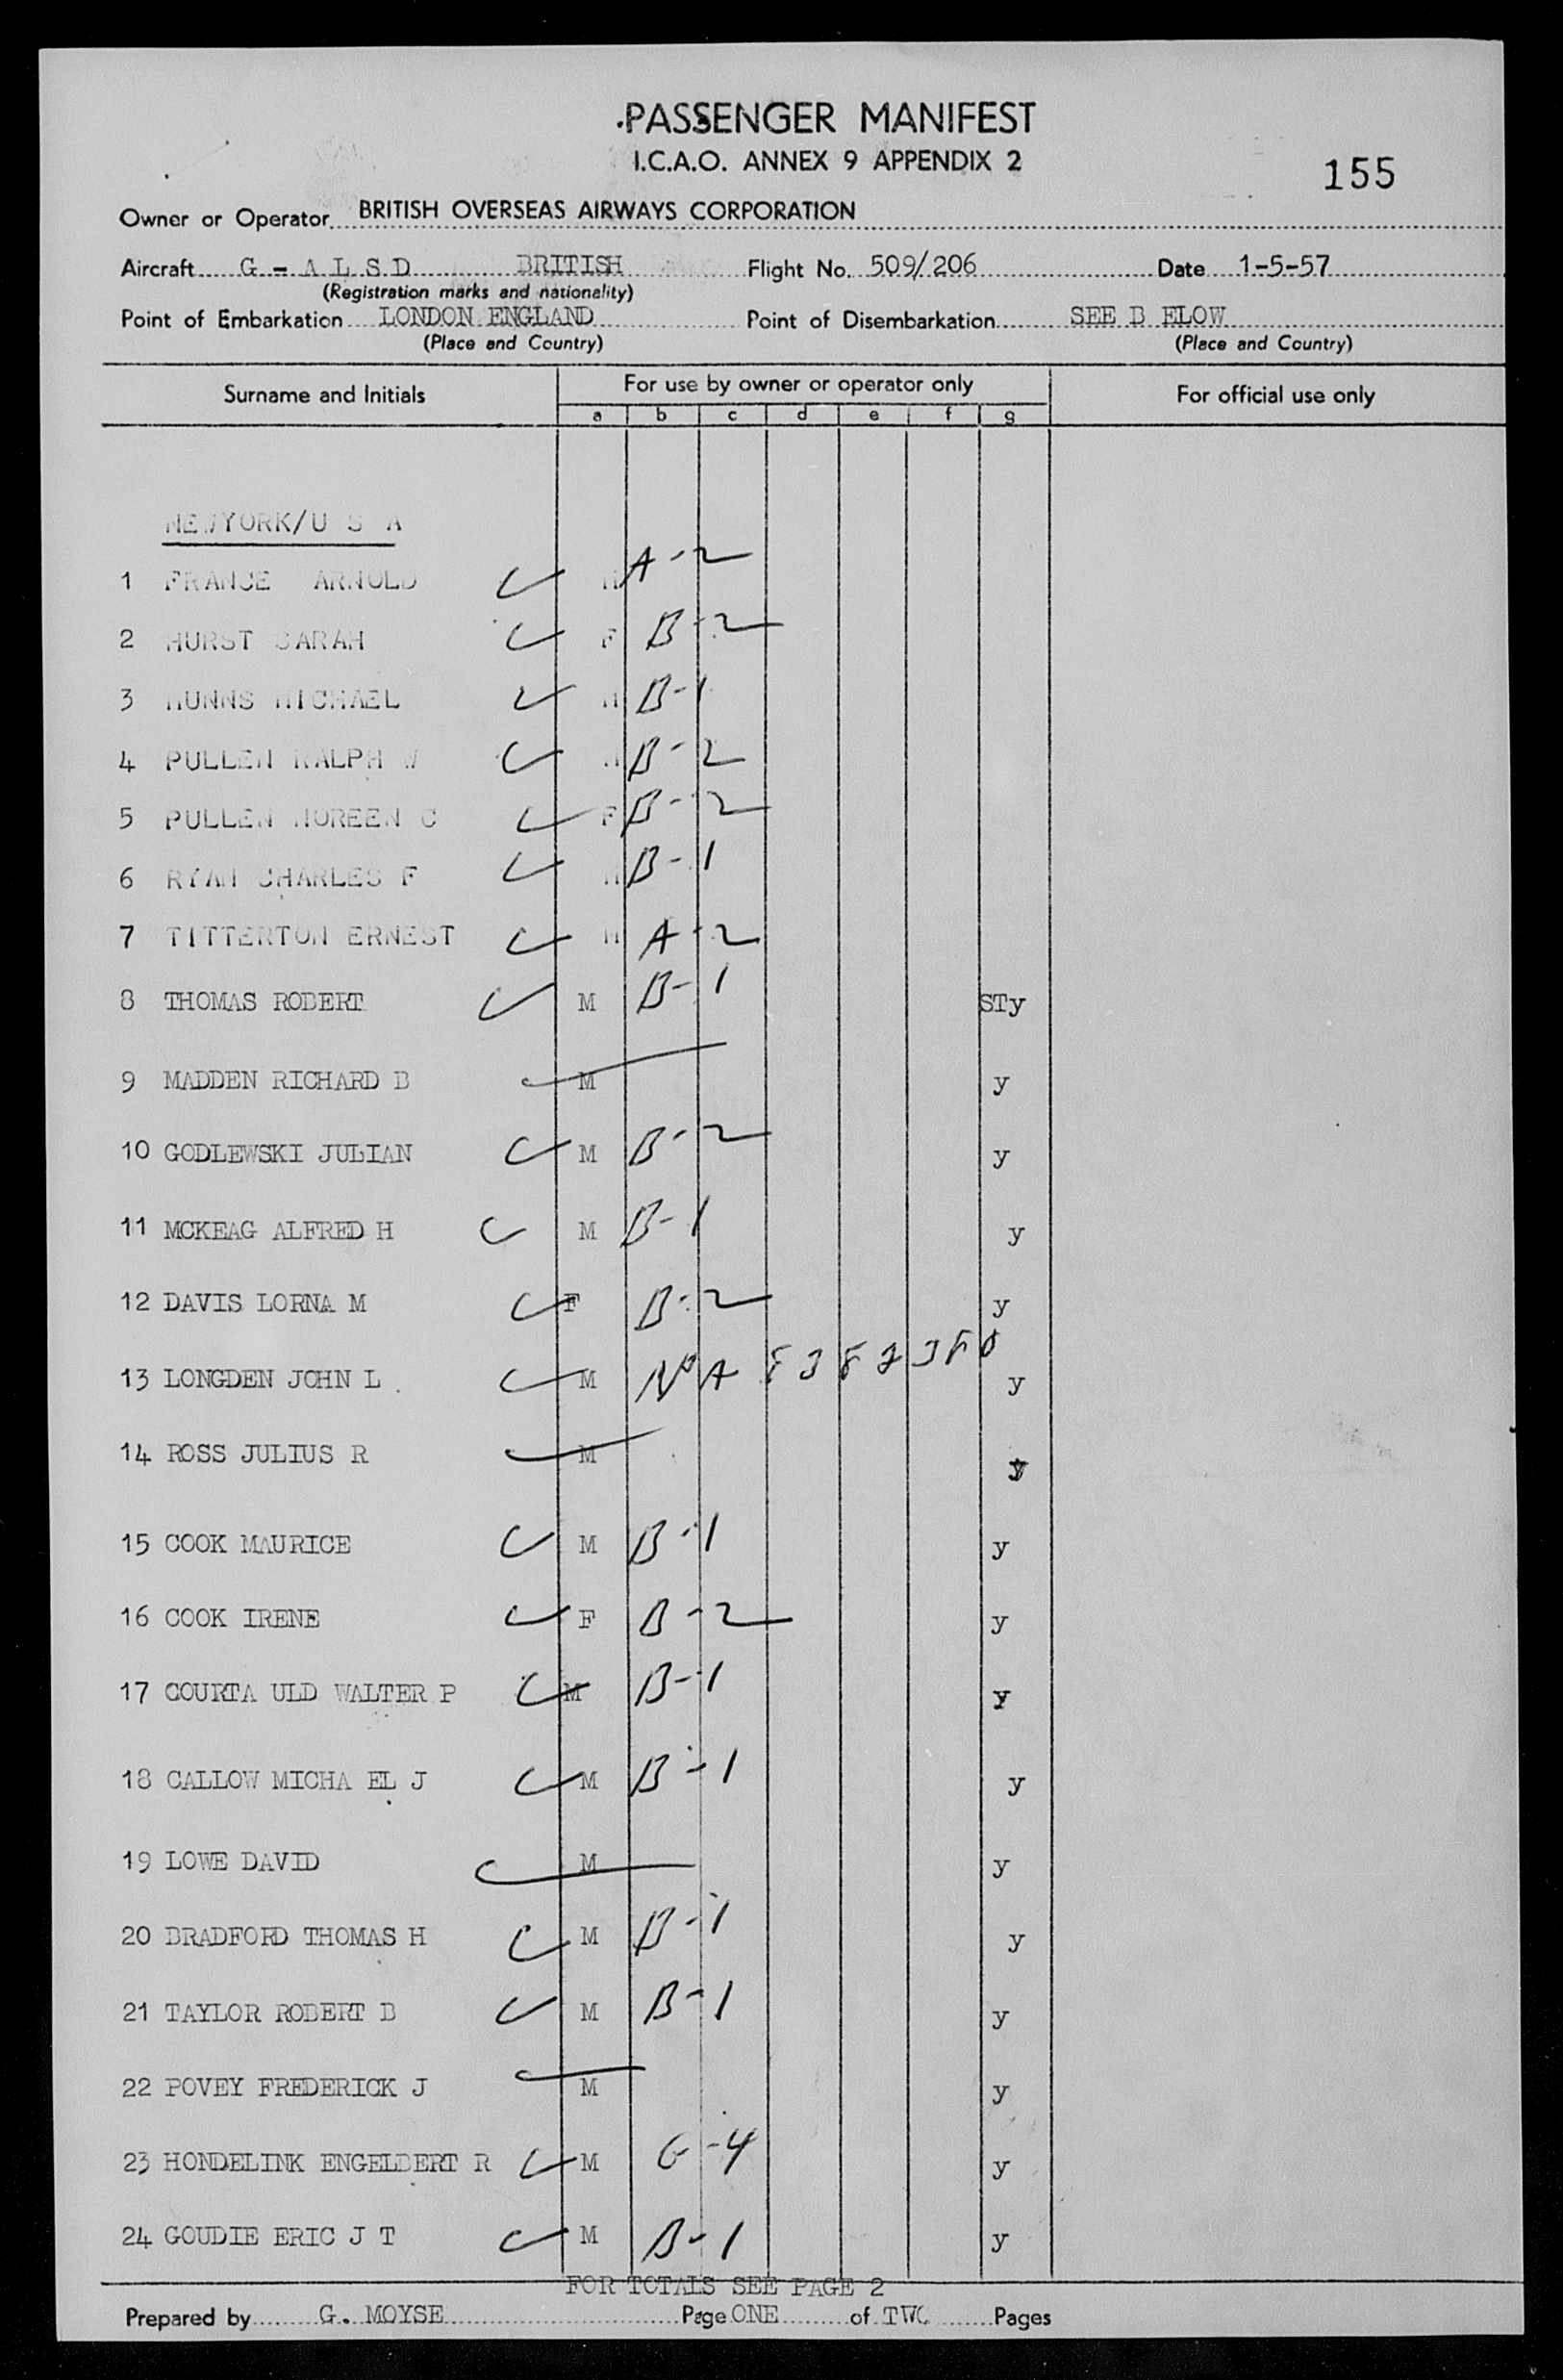 PASSENGER MANIFEST
I.C.A.O. ANNEX 9 APPENDIX 2
155
Owner or Operator BRITISH OVERSEAS AIRWAYS CORPORATION
Aircraft G - A L S D BRITISH Flight No. 509/206 Date 1-5-57
(Registration marks and nationality)
Point of Embarkation LONDON ENGLAND Point of Disembarkation SEE B ELOW
(Place and Country) (Place and Country)
Surname and Initials For use by owner or operator only For official use only
a b c d e f g
NEWYORK/U S A
1 FRANCE ARNOLD M A-2
2 HURST SARAH F B-2
3 MICHAEL M B-1
4 PULLEN RALPH W M B-2
5 PULLEN NOREEN C F B-2
6 RYAN CHARLES F M B-1
7 TITTERTON ERNEST M A-2
8 THOMAS ROBERT M B-1 STy
9 MADDEN RICHARD B M y
10 GODLEWSKI JULIAN M B-2 y
11 MCKEAG ALFRED H M B-1 y
12 DAVIS LORNA M F B-2 y
13 LONGDEN JOHN L M y
14 ROSS JULIUS R M y
15 COOK MAURICE M B-1 y
16 COOK IRENE F B-2 y
17 COURTA ULD WALTER P M B-1 y
18 CALLOW MICHA EL J M B-1 y
19 LOWE DAVID M y
20 BRADFORD THOMAS H M B-1 y
21 TAYLOR ROBERT B M B-1 y
22 POVEY FREDERICK J M y
23 HONDELINK ENGELBERT R M G-4 y
24 GOUDIE ERIC J T M B-1 y
FOR TOTALS SEE PAGE 2
Prepared by G. MOYSE Page ONE of TWO Pages